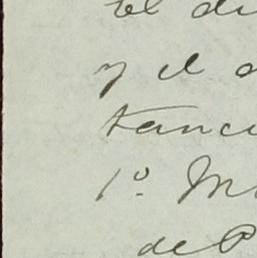 el di
y el a
tanci
1º M
de P